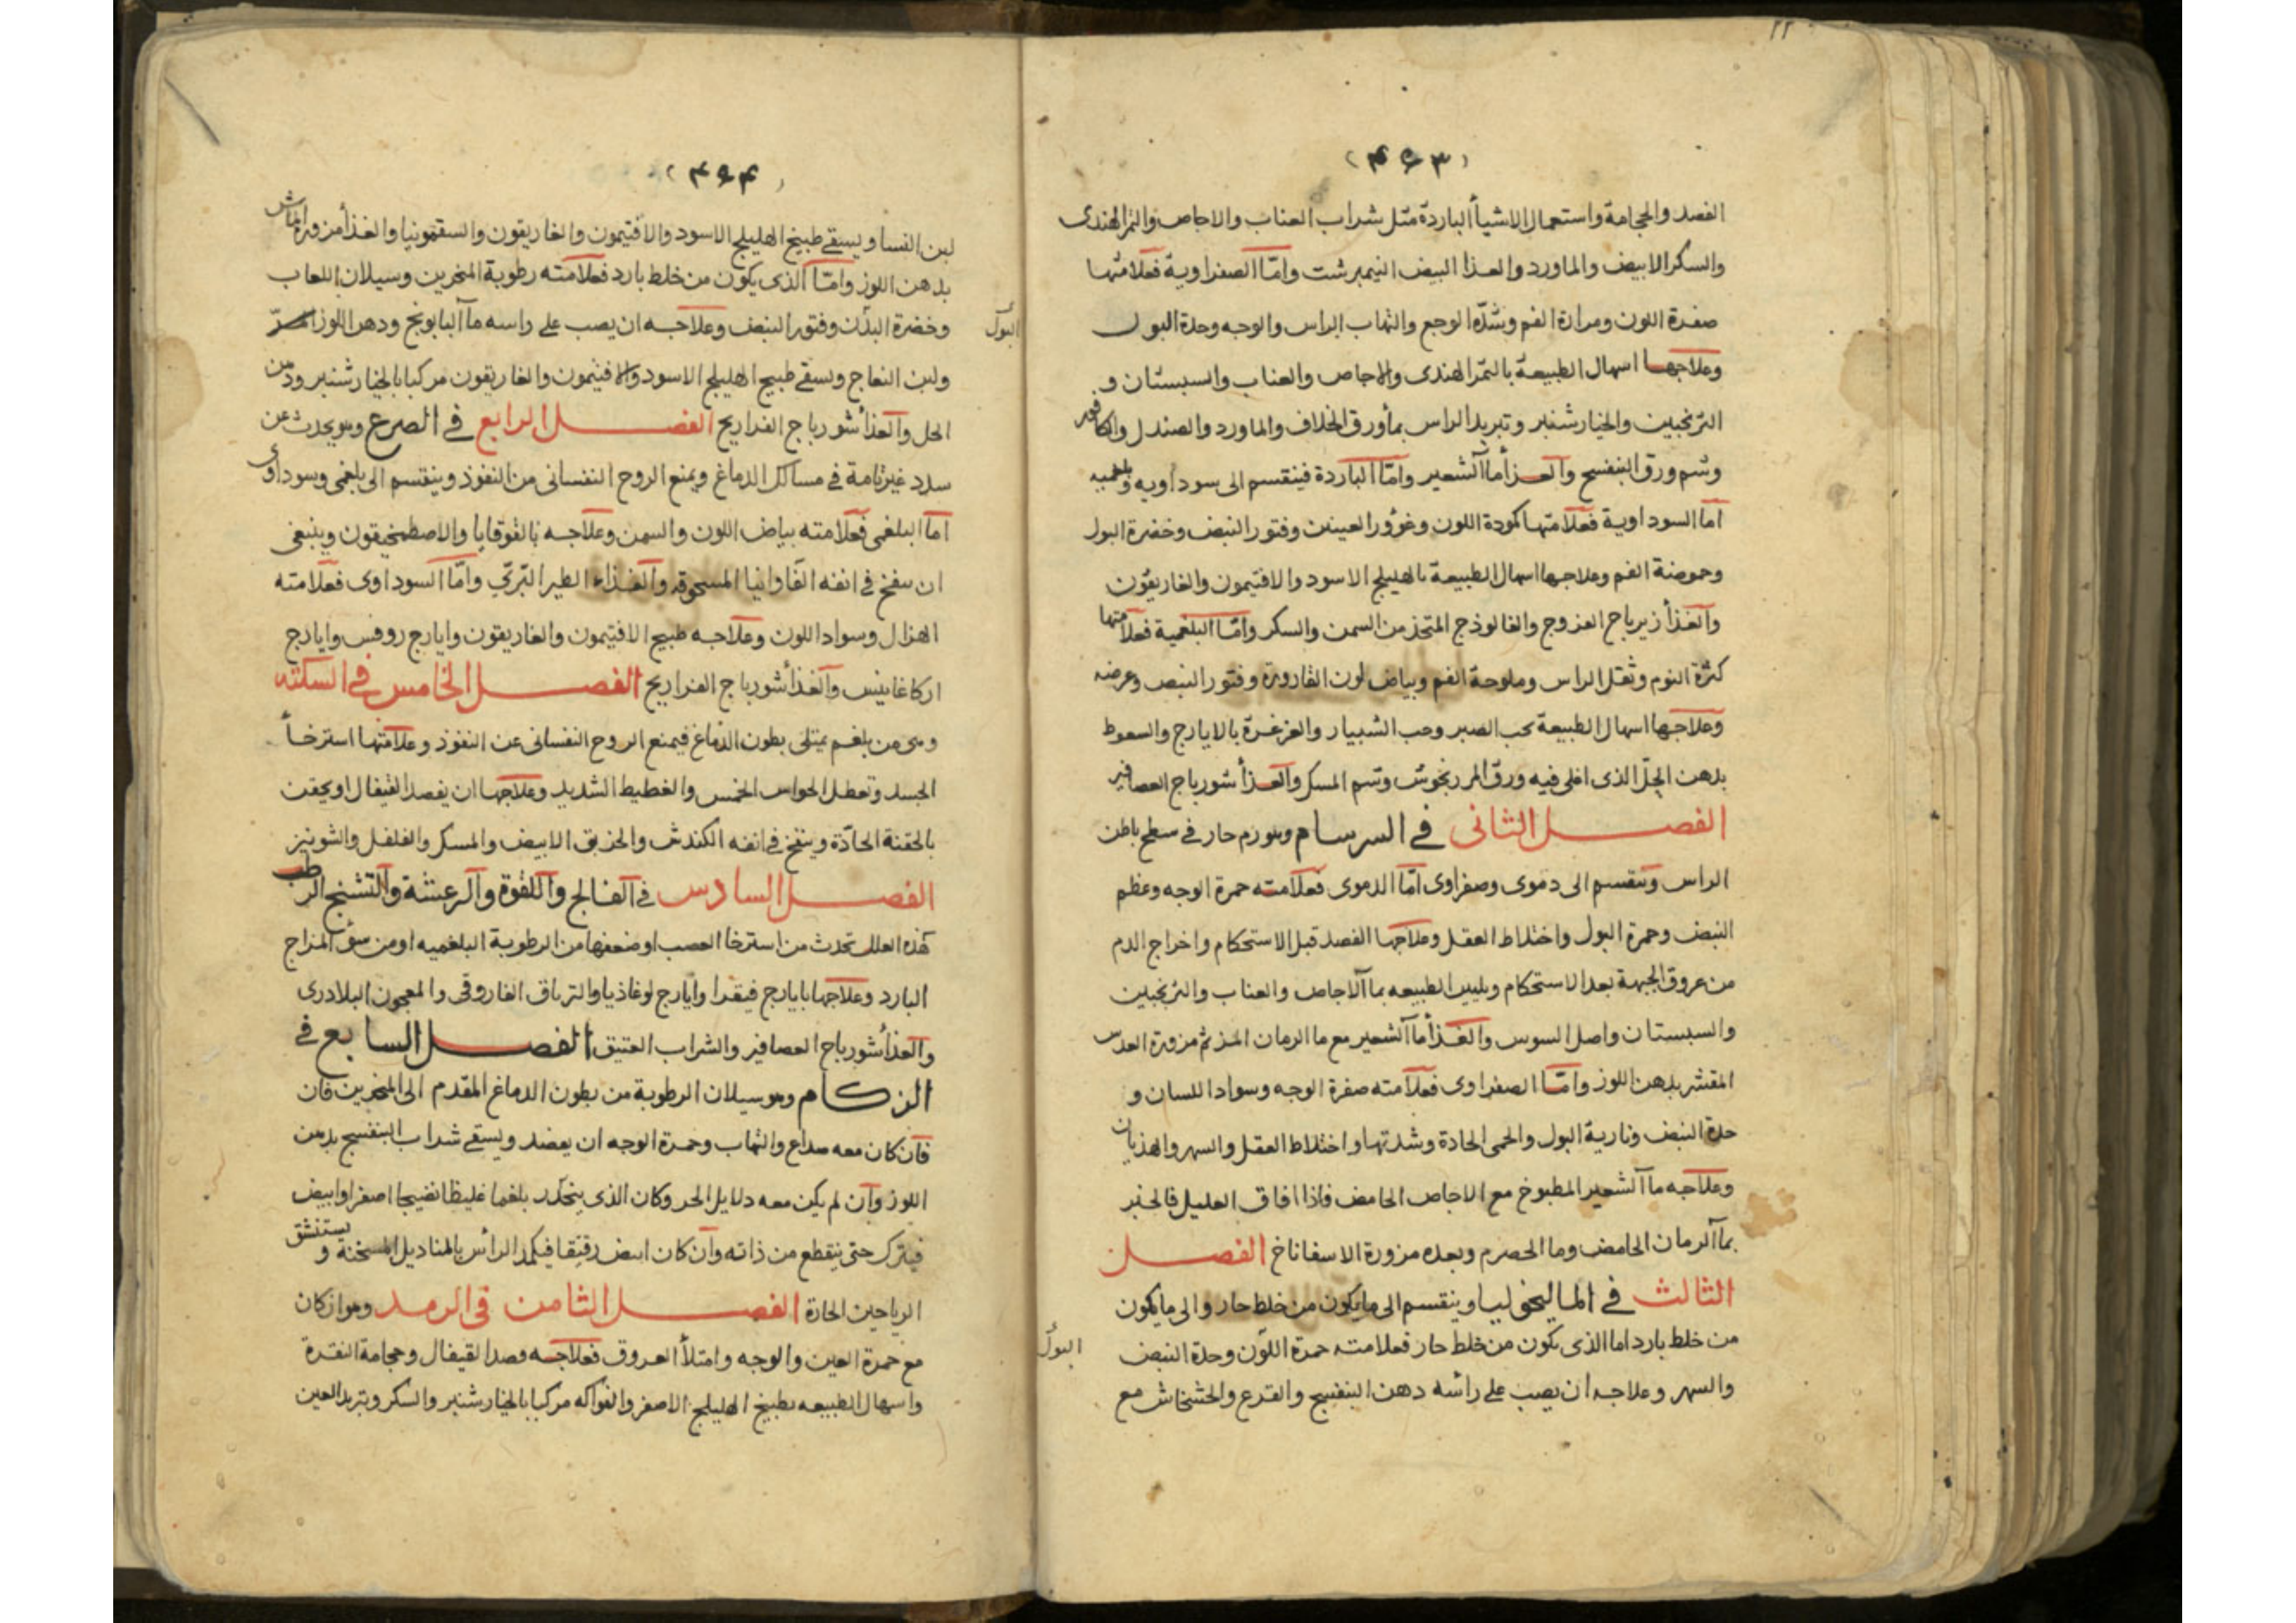 ٢٢
(٤٩٣)
الفصد والحجامة واستعمال الاشيأ الباردة مثل شراب العناب والاجاص والتمر الهندى
والسكر الابيض والماورد والغذا البيض النيمبرشت وامّا الصفراوية فعلامتها
صفرة اللون ومرارة الفم وشدّة الوجع والتهاب الراس والوجه وحدة البول
وعلاجها اسهال الطبيعة بالتمر الهندى والاجاص والعناب والسبستان و
الترنجبين والخيارشنبر وتبريد الراس بمأورق الخلاف والماورد والصندل والكافور
وشم ورق البنفسج والغذأ مأ الشعير وامّا الباردة فينقسم الى سوداويه وبلغميه
اما السوداوية فعلامتها كمودة اللون وغؤور العينين وفتور النبض وخضرة البول
وحموضة الفم وعلاجها اسهال الطبيعة بالهليلج الاسود والافتيمون والغاريقون
والغذأ زيرباج الفروج والفالوذج المتخذ من السمن والسكر وامّا البلغمية فعلامتها
كثرة النوم وثقل الراس وملوحة الفم وبياض لون القارورة وفتور النبض وعرضه
وعلاجها اسهال الطبيعة بحب الصبر وحب الشبيار والغرغرة بالايارج والسعوط
بدهن الخلّ الذى اغلى فيه ورق المرزنجوش وشم المسك والغذأ شورباج العصافير
الفصل الثانى فى السرسام وهو ورم حار فى سطح باطن
الراس وينقسم الى دموى وصفراوى امّا الدموى فعلامته حمرة الوجه وعظم
النبض وحمرة البول واختلاط العقل وعلاجها الفصد قبل الاستحكام واخراج الدم
من عروق الجبهة بعد الاستحكام وتليين الطبيعه بماآلاجاص والعناب والترنجبين
والسبستان واصل السوس والغذأ مأ الشعير مع ما الرمان المز ثم مزورة العدس
المقشر بدهن اللوز وامّا الصفراوى فعلامته صفرة الوجه وسواد اللسان و
حدة النبض ونارية البول والحمى الحادة وشدتها واختلاط العقل والسهر والهذيان
وعلاجه مأ الشعير المطبوخ مع الاجاص الحامض فاذا افاق العليل فالخبز
بمأ الرمان الحامض وما الحصرم وبعده مزورة الاسفاناخ الفصل
الثالث فى الماليخوليا وينقسم الى مايكون من خلط حار والى مايكون
من خلط بارد اما الذى يكون من خلط حار فعلامته حمرة اللّون وحدة النبض
البول
والسهر وعلاجه ان يصب على رأسه دهن البنفسج والقرع والخشخاش مع
(٤٩٤)
لبن النسا ويسقى طبيخ الهليلج الاسود والافتيمون والغاريقون والسقمونيا والغذأ مزورة الماش
بدهن اللوز وامّا الذى يكون من خلط بارد فعلامته رطوبة المنخرين وسيلان اللعاب
وخضرة البدن وفتور النبض وعلاجه ان يصب على راسه مأ البابونج ودهن اللوز المرّ
البول
ولبن النعاج ويسقى طبيخ الهليلج الاسود والافتيمون والغاريقون مركبا بالخيارشنبر ودهن
الخل والغذأ شورباج الفراريج الفصل الرابع فى الصرع وهو يحدث عن
سدد غير تامة فى مسالك الدماغ ويمنع الروح النفسانى من النفوذ وينقسم الى بلغمى وسوداوى
اما البلغمى فعلامته بياض اللون والسمن وعلاجه بالقوقايا والاصطمخيقون وينبغى
ان ينفخ فى انفه الفاوانيا المسحوقة والغذاء الطير البّرى وامّا السوداوى فعلامته
الهزال وسواد اللون وعلاجه طبيخ الافتيمون والغاريقون وايارج روفس وايارج
اركاغانيس والغذأ شورباج الفراريج الفصل الخامس فى السكته
وهى من بلغم يمتلى بطون الدماغ فيمنع الروح النفسانى عن النفوذ وعلامتها استرخأ
الجسد وتعطل الحواس الخمس والغطيط الشديد وعلاجها ان يفصد القيفال او يحقن
بالحقنة الحادّة وينفخ فى انفه الكندش والخربق الابيض والمسك والفلفل والشونيز
الفصل السادس فى الفالج واللقوة والرعشة والتشنج الرطب
هذه العلل تحدث من استرخا العصب او ضعفها من الرطوبة البلغميه او من سؤ المزاج
البارد وعلاجها بايارج فيقرا وايارج لوغاذيا والترياق الفاروقى والمعجون البلادرى
والغذأ شورباج العصافير والشراب العتيق الفصل السابع فى
الزكام وهو سيلان الرطوبة من بطون الدماغ المقدم الى المنخرين فان
فان كان معه صداع والتهاب وحمرة الوجه ان يفصد ويسقى شراب البنفسج بدهن
اللوز وان لم يكن معه دلايل الحر وكان الذى يتحدّر بلغما غليظا نضيجا اصفر او ابيض
فيترك حتى ينقطع من ذاته وان كان ابيض رقيقا فيكمد الرأس بالمناديل المسخنة و يستنشق
الرياحين الحارة الفصل الثامن فى الرمد وهو ان كان
مع حمرة العين والوجه وامتلأ العروق فعلاجه فصد القيفال وحجامة النقرة
واسهال الطبيعه بطبيخ الهليلج الاصفر والفواكه مركبا بالخيارشنبر والسكر وتبريد العين